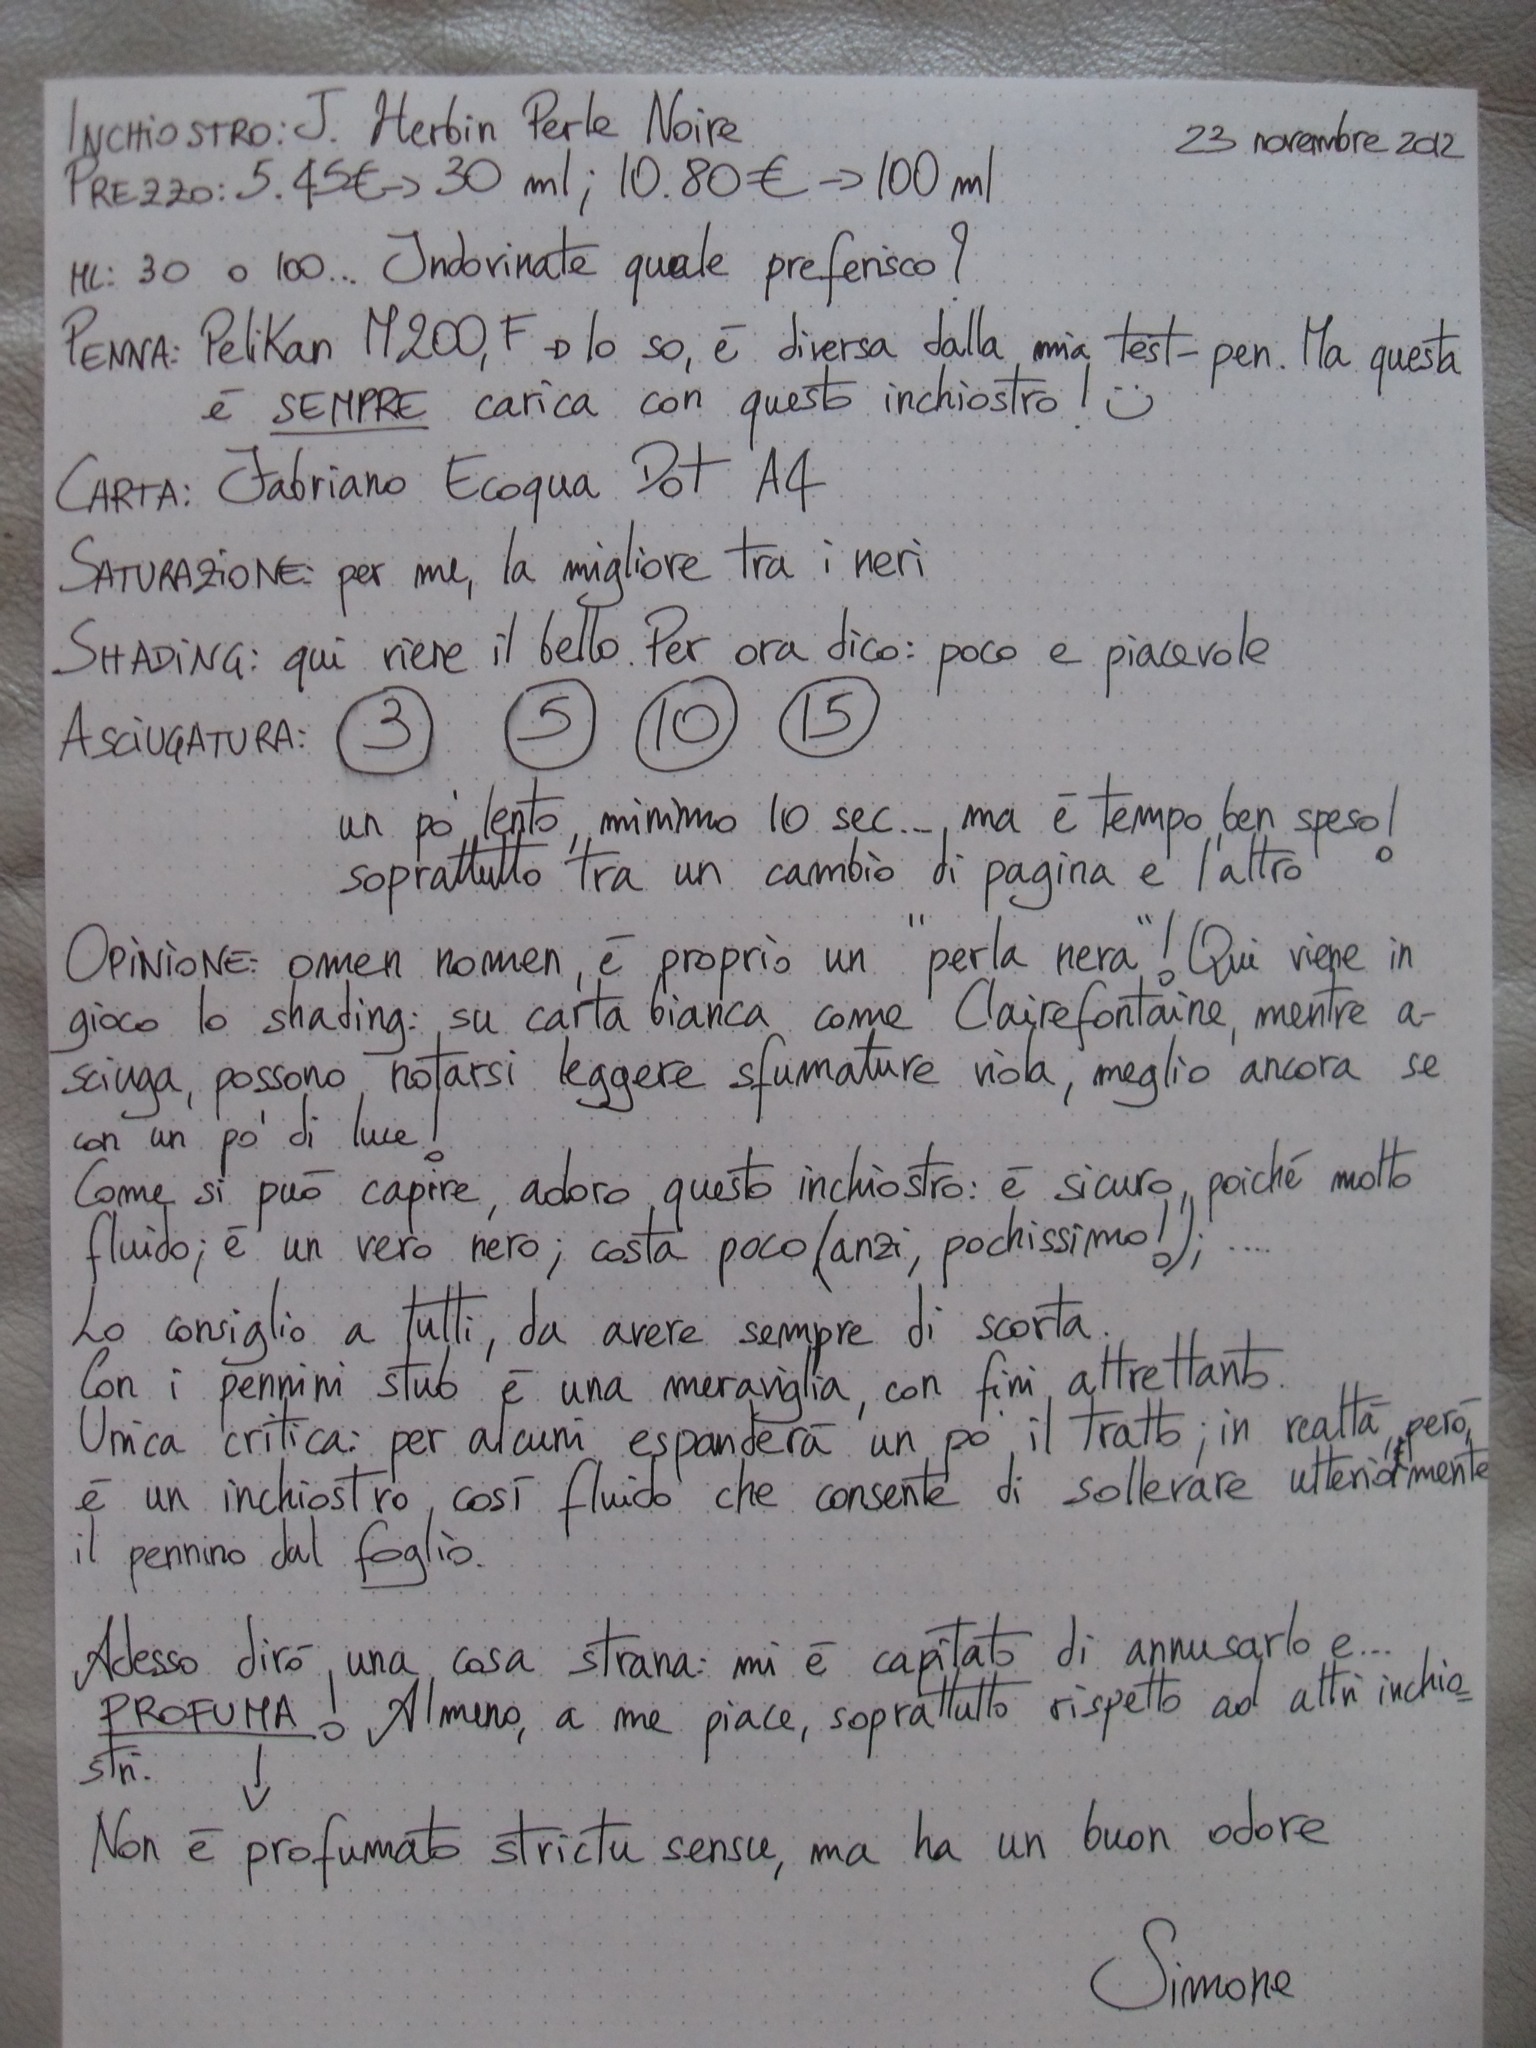 INCHIOSTRO: J. Herbin Perle Noire
23 novembre 2012
PREZZO: 5.45€ -> 30 ml; 10.80€ -> 100 ml
ML: 30 o 100... Indovinate quale preferisco?
PENNA: Pelikan M200, F -> lo so, è diversa dalla mia test-pen. Ma questa
è SEMPRE carica con questo inchiostro! :)
CARTA: Fabriano Ecoqua Dot A4
SATURAZIONE: per me, la migliore tra i neri
SHADING: qui viene il bello. Per ora dico: poco e piacevole
ASCIUGATURA: 3 5 10 15
un po' lento, minimo 10 sec..., ma è tempo ben speso!
soprattutto tra un cambio di pagina e l'altro
OPINIONE: omen nomen, è proprio un "perla nera"! Qui viene in
gioco lo shading: su carta bianca come Clairefontaine, mentre a-
sciuga, possono notarsi leggere sfumature viola, meglio ancora se
con un po' di luce!
Come si può capire, adoro questo inchiostro: è sicuro, poiché molto
fluido; è un vero nero; costa poco (anzi, pochissimo!); ....
Lo consiglio a tutti, da avere sempre di scorta.
Con i pennini stub è una meraviglia, con fini altrettanto.
Unica critica: per alcuni espanderà un po' il tratto; in realtà, però,
è un inchiostro così fluido che consente di sollevare ulteriormente
il pennino dal foglio.
Adesso dirò una cosa strana: mi è capitato di annusarlo e...
PROFUMA! Almeno, a me piace, soprattutto rispetto ad altri inchio=
stri. ↓
Non è profumato strictu sensu, ma ha un buon odore
Simone